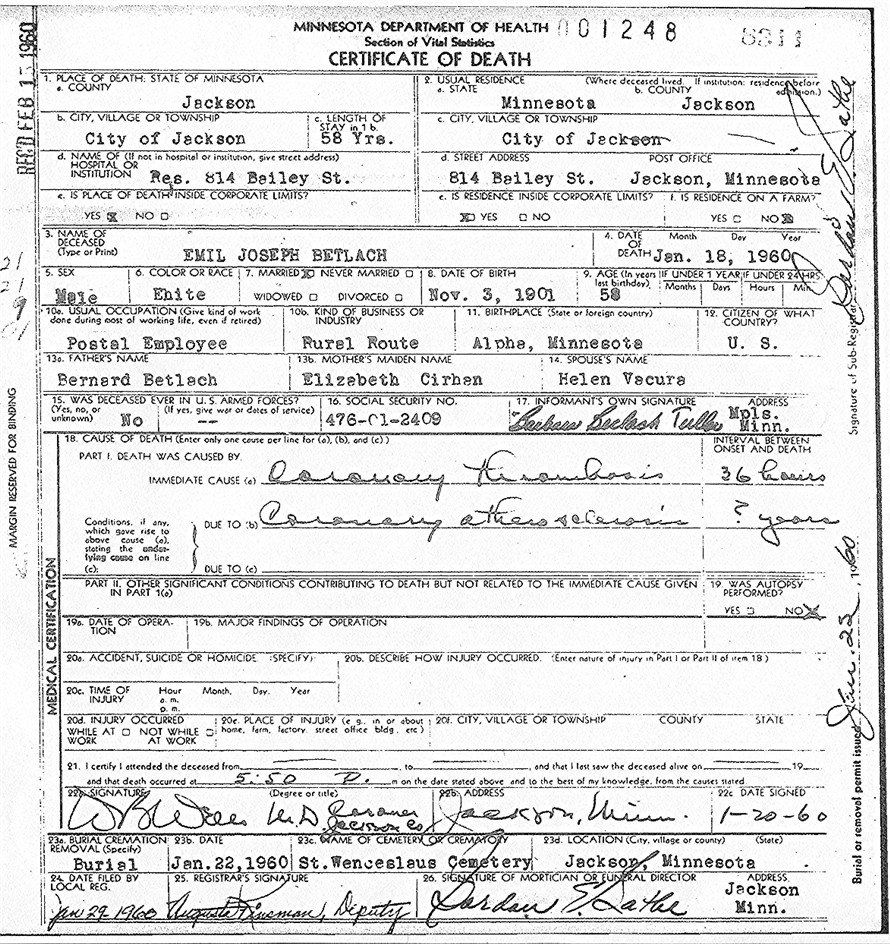 MINNESOTA DEPARTMENT OF HEALTH 001248
Section of Vital Statistics
CERTIFICATE OF DEATH
REC'D FEB 1 1960
1. PLACE OF DEATH: STATE OF MINNESOTA
a. COUNTY
Jackson
2. USUAL RESIDENCE (Where deceased lived. If institution: residence before admission.)
a. STATE b. COUNTY
Minnesota Jackson
b. CITY, VILLAGE OR TOWNSHIP
City of Jackson
c. LENGTH OF STAY in 1 b.
58 Yrs.
c. CITY, VILLAGE OR TOWNSHIP
City of Jackson
d. NAME OF (If not in hospital or institution, give street address)
HOSPITAL OR
INSTITUTION Res. 814 Bailey St.
d. STREET ADDRESS POST OFFICE
814 Bailey St. Jackson, Minnesota
e. IS PLACE OF DEATH INSIDE CORPORATE LIMITS?
YES X NO
e. IS RESIDENCE INSIDE CORPORATE LIMITS?
X YES NO
f. IS RESIDENCE ON A FARM?
YES NO X
3. NAME OF DECEASED (Type or Print)
EMIL JOSEPH BETLACH
4. DATE OF DEATH Month Day Year
Jan. 18, 1960
5. SEX
Male
6. COLOR OR RACE
Ehite
7. MARRIED X NEVER MARRIED
WIDOWED DIVORCED
8. DATE OF BIRTH
Nov. 3, 1901
9. AGE (In years last birthday)
58
IF UNDER 1 YEAR IF UNDER 24 HRS.
Months Days Hours Min.
10a. USUAL OCCUPATION (Give kind of work done during most of working life, even if retired)
Postal Employee
10b. KIND OF BUSINESS OR INDUSTRY
Rural Route
11. BIRTHPLACE (State or foreign country)
Alpha, Minnesota
12. CITIZEN OF WHAT COUNTRY?
U. S.
13a. FATHER'S NAME
Bernard Betlach
13b. MOTHER'S MAIDEN NAME
Elizabeth Cirhan
14. SPOUSE'S NAME
Helen Vacura
15. WAS DECEASED EVER IN U. S. ARMED FORCES?
(Yes, no, or unknown) (If yes, give war or dates of service)
No --
16. SOCIAL SECURITY NO.
476-01-2409
17. INFORMANT'S OWN SIGNATURE ADDRESS
Barbara Betlach Mpls. Minn.
18. CAUSE OF DEATH (Enter only one cause per line for (a), (b), and (c))
INTERVAL BETWEEN ONSET AND DEATH
PART I. DEATH WAS CAUSED BY.
IMMEDIATE CAUSE (a) Coronary thrombosis 36 hours
Conditions, if any, which gave rise to above cause (a), stating the underlying cause on line (c):
DUE TO (b) Coronary atherosclerosis ? years
DUE TO (c)
PART II. OTHER SIGNIFICANT CONDITIONS CONTRIBUTING TO DEATH BUT NOT RELATED TO THE IMMEDIATE CAUSE GIVEN IN PART 1(a)
19. WAS AUTOPSY PERFORMED?
YES NO X
19a. DATE OF OPERATION
19b. MAJOR FINDINGS OF OPERATION
20a. ACCIDENT, SUICIDE OR HOMICIDE (SPECIFY)
20b. DESCRIBE HOW INJURY OCCURRED. (Enter nature of injury in Part I or Part II of item 18)
20c. TIME OF INJURY Hour Month, Day, Year
a. m.
p. m.
20d. INJURY OCCURRED
WHILE AT WORK NOT WHILE AT WORK
20e. PLACE OF INJURY (e.g., in or about home, farm, factory, street office bldg. etc)
20f. CITY, VILLAGE OR TOWNSHIP COUNTY STATE
21. I certify I attended the deceased from to , and that I last saw the deceased alive on 19
and that death occurred at 5:50 P. m on the date stated above and to the best of my knowledge, from the causes stated
22a. SIGNATURE (Degree or title)
M.D. Coroner Jackson Co
22b. ADDRESS
Jackson, Minn.
22c DATE SIGNED
1-20-60
23a. BURIAL CREMATION REMOVAL (Specify)
Burial
23b. DATE
Jan.22,1960
23c. NAME OF CEMETERY OR CREMATORY
St.Wenceslaus Cemetery
23d. LOCATION (City, village or county) (State)
Jackson, Minnesota
24. DATE FILED BY LOCAL REG.
Jan 29 1960
25. REGISTRAR'S SIGNATURE
Deputy
26. SIGNATURE OF MORTICIAN OR FUNERAL DIRECTOR
ADDRESS
Jackson
Minn.
MARGIN RESERVED FOR BINDING
MEDICAL CERTIFICATION
Signature of Sub-Registrar
Burial or removal permit issued Jan 22, 1960